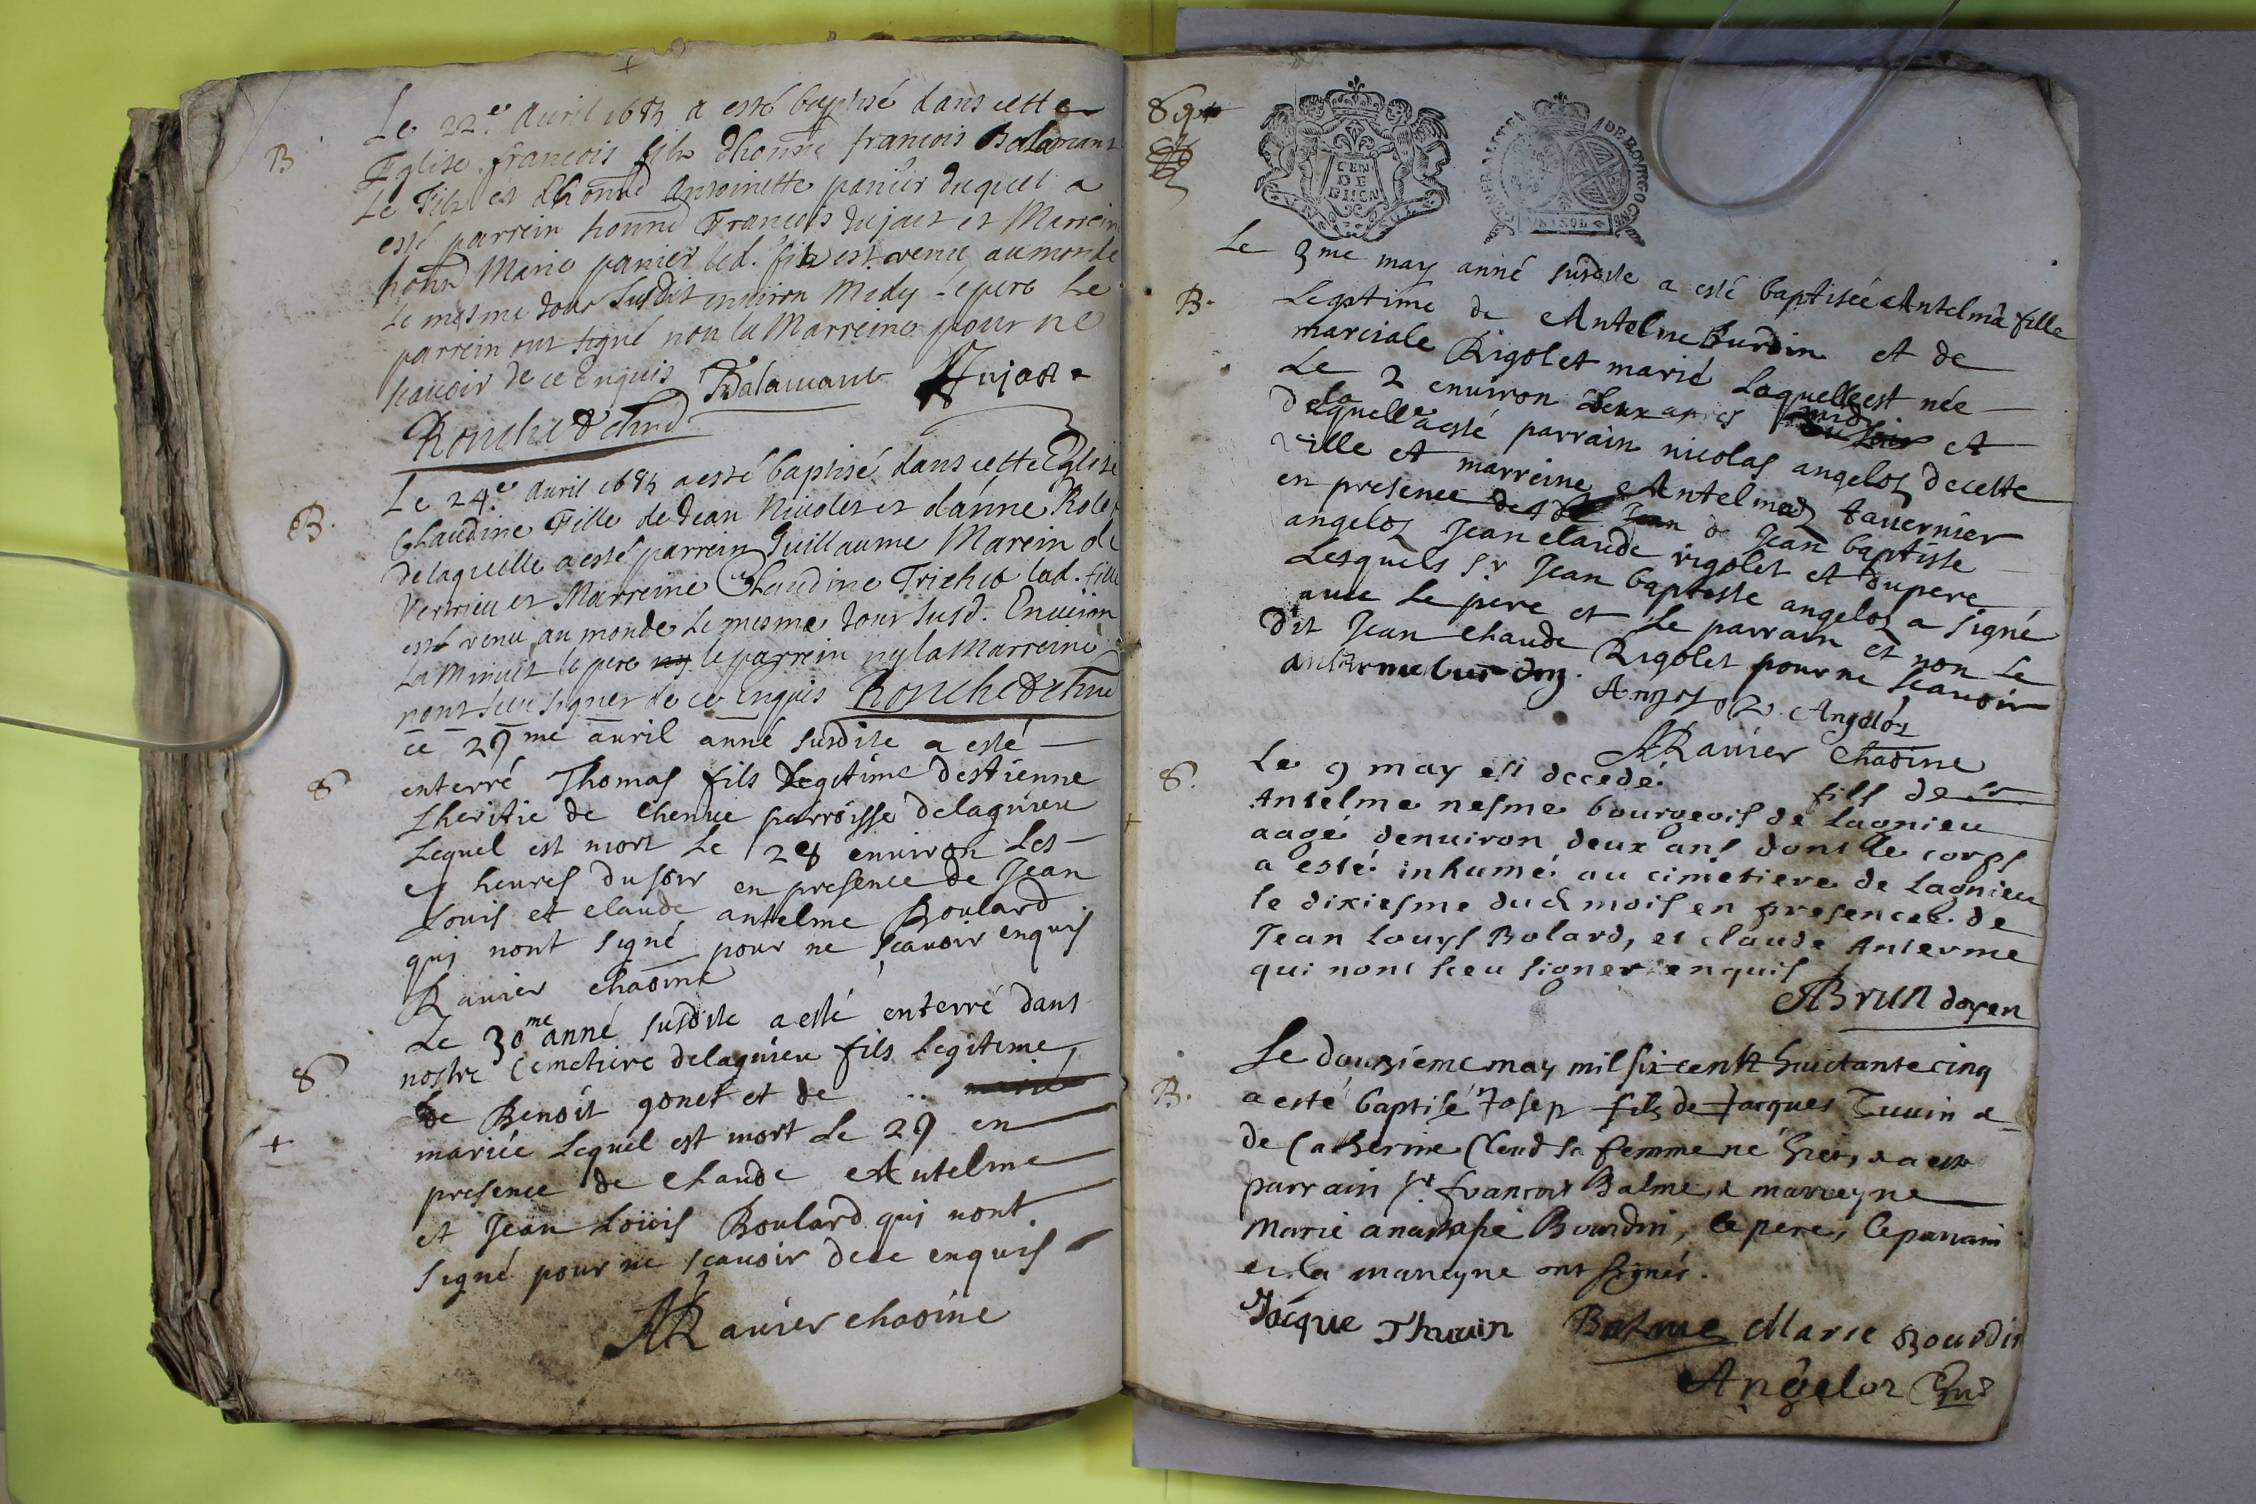 B
Le 22.e Auril 1685 a esté baptisé dans cette
Eglise françois fils dhonne françois Balamant
Le Filz et dhonne Antoinette panier duquel a
esté parrein honne François dujast et Marreine
honne Marie panier led. filz est venu au monde
Le mesme Jour Susdit enuiron Midy Le pere Le
parrein ont signé non la Marreine pour ne
scauoir de ce Enquis Balamant Dujast
Rouche
B.
Le 24.e Auril 1685 a esté baptisé dans cette Eglise
Claudine Fille de Jean Nicolet et danne Rolet
de laquelle a esté parrein Guillaume Marein de
Vertrieu et Marreine Claudine Triches lad. fille
est venu au monde Le mesme Jour susd. Enuiron
La Minuit le pere ny le parrein ny la Marreine
nont sceu signer de ce Enquis Rouche
ce 29me auril anné susdite a esté
S
enterré Thomas fils Legitime destienne
Lheritie de Chenue parroisse delagnieu
Lequel est mort Le 28 enuiron Les
heures du soir en presence de Jean
Louis et claude antelme Boulard
qui nont signé pour ne scauoir enquis
Rauier
Le 30me anné susdite a esté enterré dans
S
nostre Cemetiere delagnieu fils Legitime
de Benoit gonet et de .. marié
mariée Lequel est mort Le 29 en
+
presence de Claude Antelme
et Jean Loüis Boulard qui nont
signé pour ne scauoir dece enquis
Rauier
CEN
DE
DIION
GENERALITE DE BOVRGOGNE
Le 3me may anné susdite a esté baptisée Antelma fille
B.
Legitime de Antelme Burdin et de
marciale Rigolet marié Laquelle est née
Le 2 enuiron deux apres midy et
de laquelle a esté parrain nicolas angeloz decette
ville et marreine Antelma tauernier
en presence de Jean de Jean baptiste
angeloz Jean claude rigolet et du pere
Lesquels sr Jean baptiste angeloz a signé
auec Le pere et Le parrain et non Le
dit Jean Claude Rigolet pour ne scauoir
Angeloz
Rauier
Le 9 may est decedé fils de sr
S.
Antelme nesme bourgeois de Lagnieu
aagé denuiron deux ans dont le corps
a esté inhumé au cimetiere de Lagnieu
le dixiesme dud mois en presence de
Jean Louys Bolard, et claude Anterme
qui nont sceu signer enquis
Brun doyen
Le douzieme may mil six cent huictante cinq
B.
a esté baptisé Josep fils de Jacques Tuuin et
de Catherine sa femme né hier, et a esté
parrain sr. françois Balme, et marreyne
Marie anastasie Bourdin, le pere, le parrain
et la marreyne ont signés.
Jacque Thuuin Balme Marie Bourdin
Angeloz